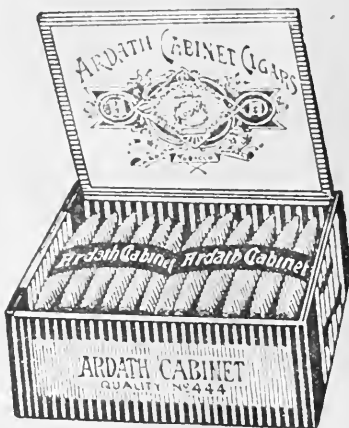 ARDATH CABINET CIGARS
Ardath Cabinet Ardath Cabinet
ARDATH CABINET
QUALITY Nº 444